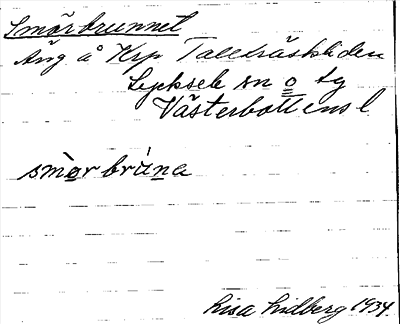 Smörbrunnet
Äng å Krp Tallträskliden
Lycksele sn o tg
Västerbottens l
smòrbrùna
Lisa Lidberg 1934.